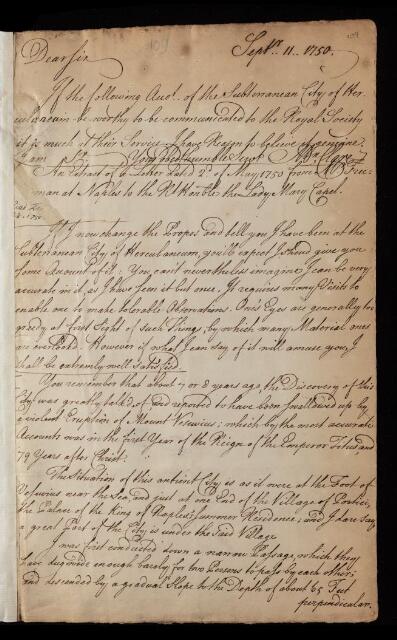 Sepbr. 11. 1750.
Dear Sir
If the following Acct. of the Subterranean City of Her-
culaneum be worthy to be communicated to the Royal Society
it is much at their Service. I have Reason to believe it genuine.
I am Sr. Your obed. humble Servt.
An Extract of a Letter dated 2d. of May 1750 from Mr Free-
man at Naples to the Rt. Honble. the Lady Mary Capel.
If I now change the Scope and tell you I have been at the
Subterranean City of Herculaneum, you'll expect I shoud give you
Some Account of it: You can't nevertheless imagine I can be very
accurate in it, as I have seen it but once. It requires many Visits to
enable one to make tolerable Observations. One's Eyes are generally too
greedy at first Sight of such Things; by which many Material ones
are overlooked. However if what I can say of it will amuse you, I
shall be extremely well satisfied.
You remember that about 7 or 8 years ago, the Discovery of this
City was greatly talk'd of and reported to have been swallowed up by
a violent Eruption of Mount Vesuvius: which by the most accurate
Accounts was in the first Year of the Reign of the Emperor Titus and
79 Years after Christ.
The Situation of this antient City is as it were at the Foot of
Vesuvius near the Sea, and just at one End of the Village of Portici,
the Palace of the King of Naples's Summer Residence; and I dare say
a great Part of the City is under the said Village.
I was first conducted down a narrow Passage, which they
have dug wide enough barely for two Persons to pass by each other;
and descended by a gradual Slope to the Depth of about 65 Feet
perpendicular.